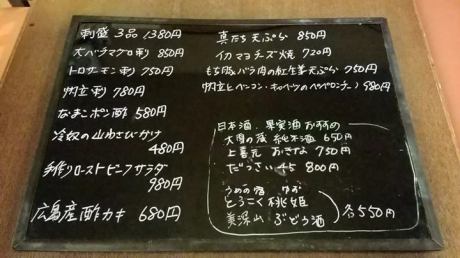 刺盛 3品 1380円
大バラマグロ刺 850円
トロサーモン刺 750円
帆立刺 780円
なまこポン酢 580円
冷奴の山わさびかけ
480円
手作りローストビーフサラダ
980円
広島産酢カキ 680円
真だち天ぷら 850円
イカマヨチーズ焼 720円
もち豚バラ肉の紅生姜天ぷら 750円
帆立とベーコン・キャベツのペペロンチーノ 980円
日本酒、果実酒おすすめ
純米酒 650円
上喜元 おきな 750円
だっさい 45 800円
うめの宿 ゆず
とろこく 桃姫
美深山 ぶどう酒
各550円